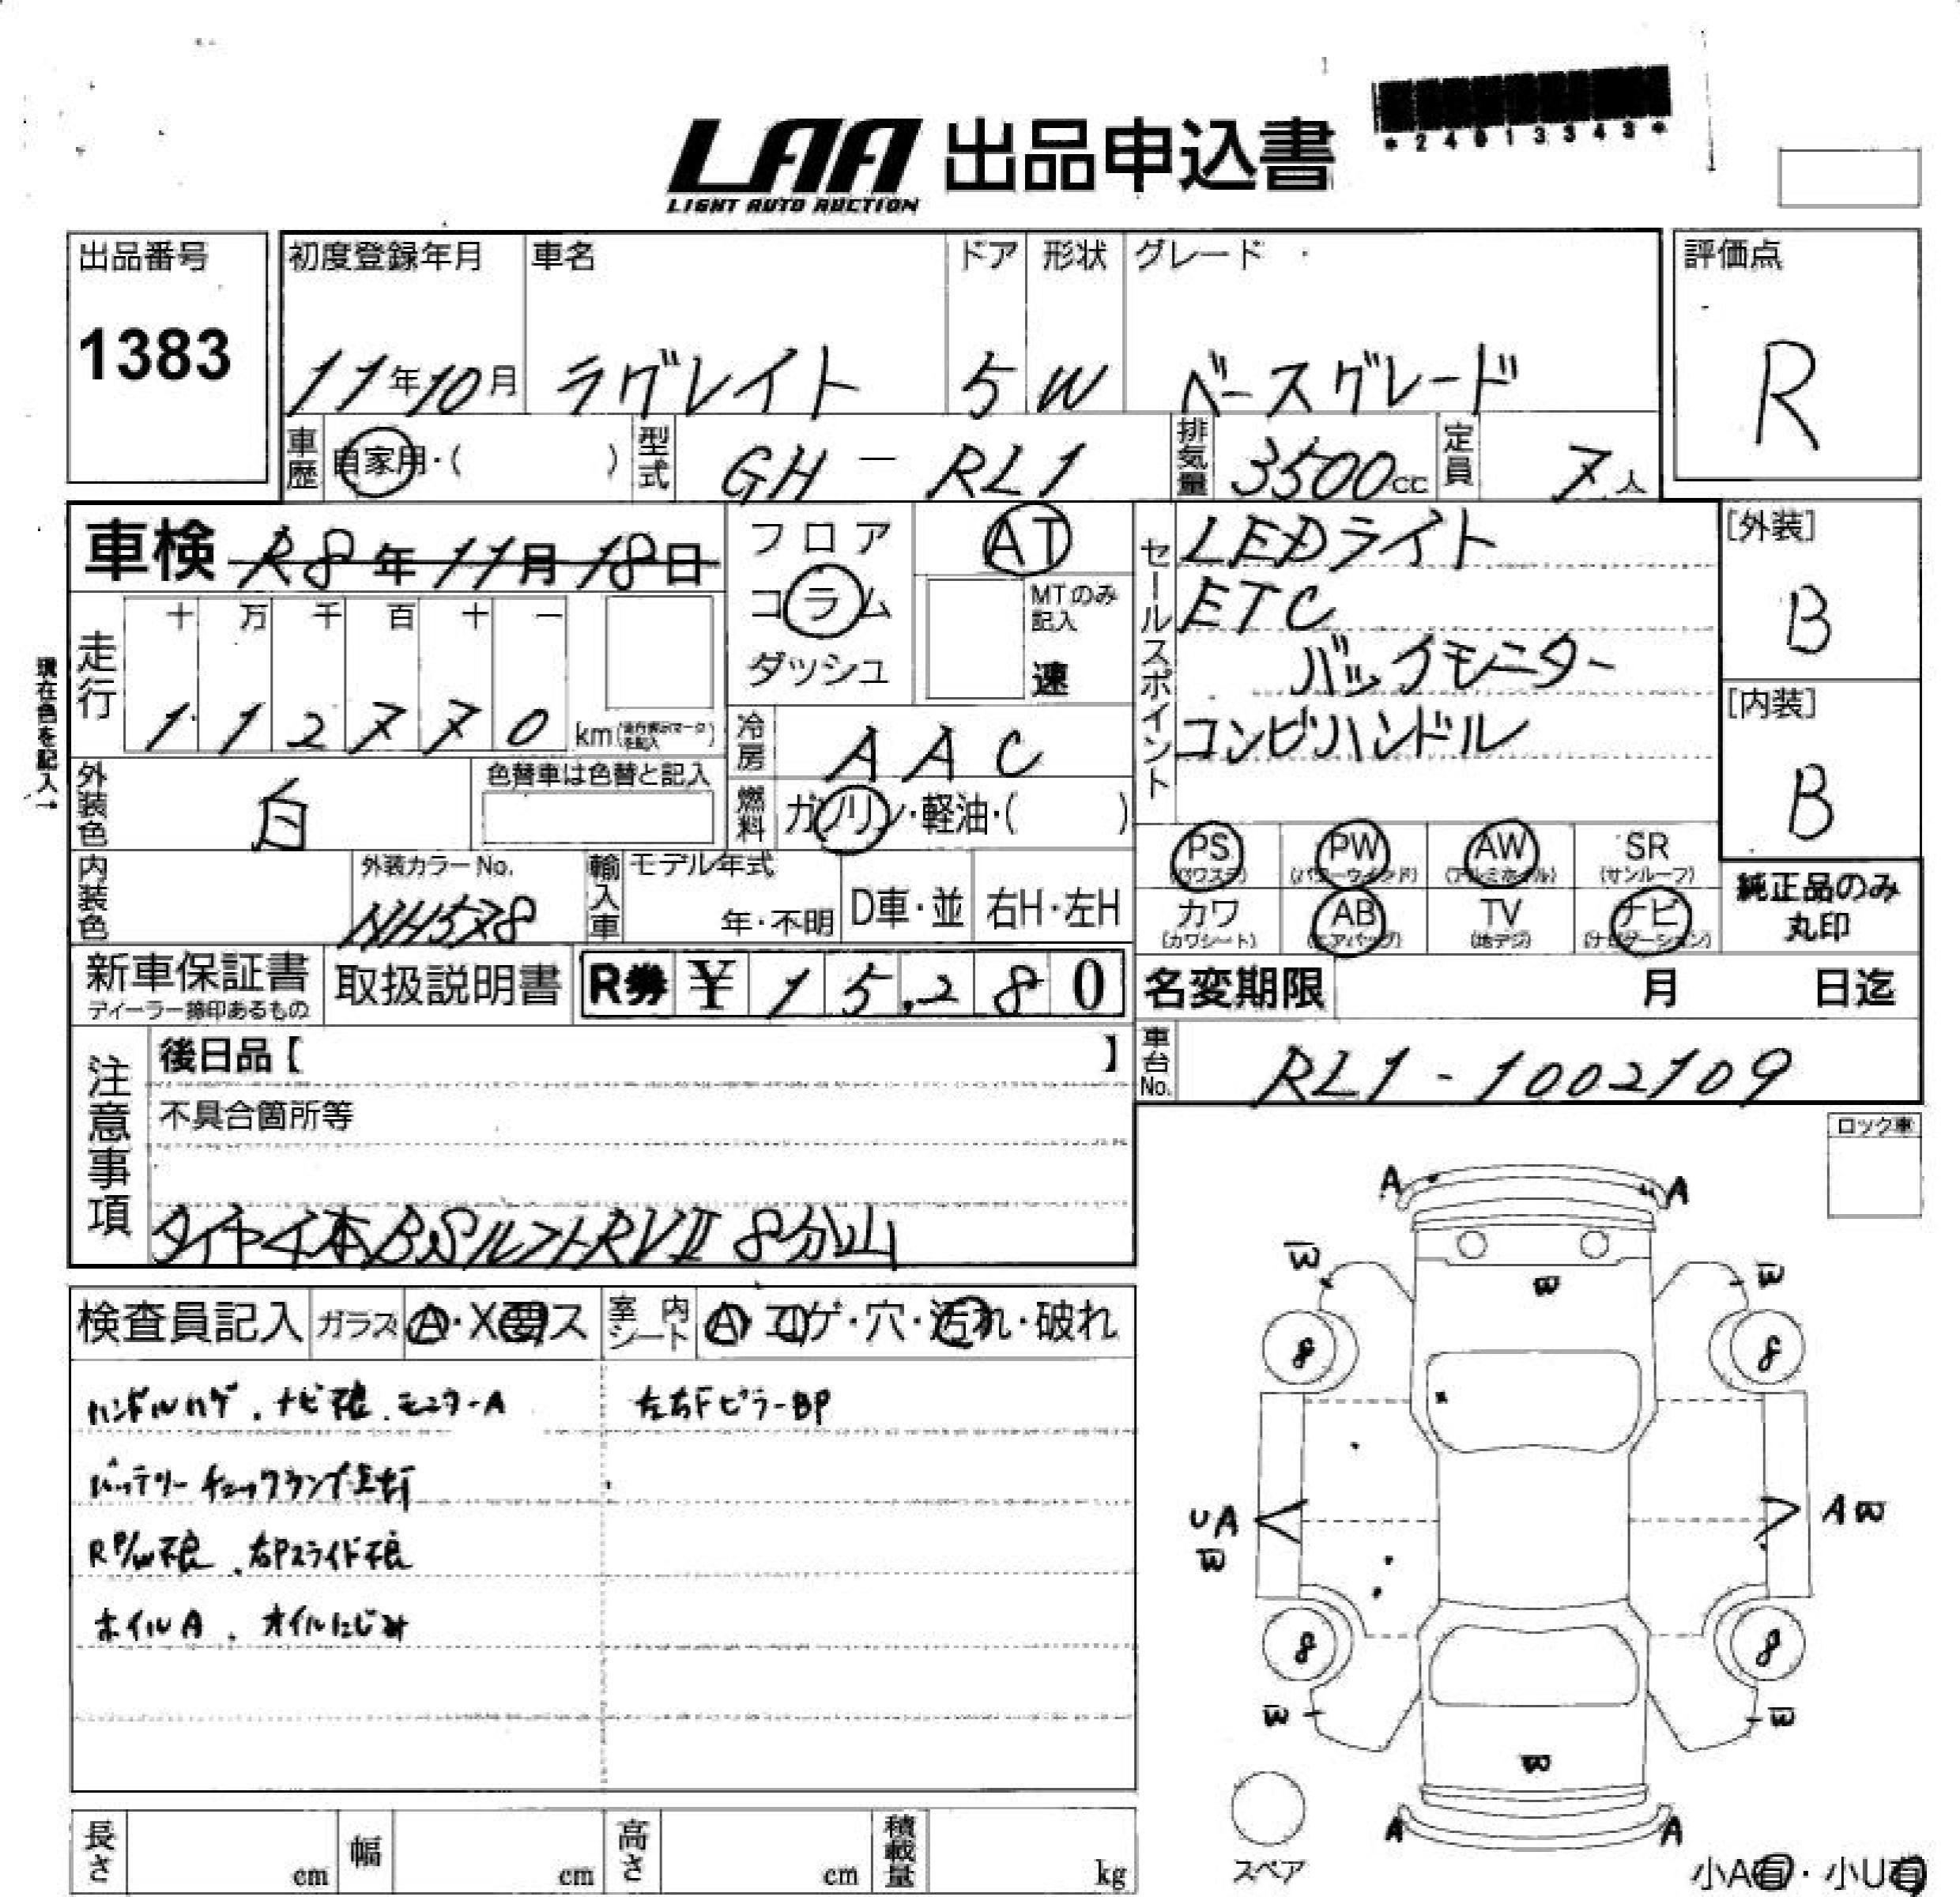 LAA 出品申込書
LIGHT AUTO AUCTION
*24013343*
出品番号
1383
初度登録年月 車名 ドア 形状 グレード
11年10月 ラグレイト 5 W ベースグレード
評価点
R
車歴 自家用・( ) 型式 GH-RL1 排気量 3500cc 定員 7人
車検 R8年11月18日
フロア
コラム
ダッシュ
AT
MTのみ記入
速
セールスポイント
LEDライト
ETC
バックモニター
コンビハンドル
[外装]
B
[内装]
B
現在色を記入→
走行
十 万 千 百 十 一
1 1 2 7 7 0 km
冷房 AAC
燃料 ガソリン・軽油・( )
外装色 白
色替車は色替と記入
内装色
外装カラーNo.
NH578
輸入車 モデル年式
年・不明 D車・並 右H・左H
PS (パワステ) PW (パワーウインド) AW (アルミホイル) SR (サンルーフ)
カワ (カワシート) AB (エアバッグ) TV (地デジ) ナビ (ナビゲーション)
純正品のみ
丸印
新車保証書
ディーラー捺印あるもの
取扱説明書
R券 ¥15,280
名変期限 月 日迄
車台No. RL1-1002109
注意事項
後日品【 】
不具合箇所等
タイヤ4本BSルフトRVⅡ 8分山
ロック車
検査員記入 ガラス A・X要ス 室内シート A・コゲ・穴・汚れ・破れ
ハンドルハゲ、ナビ不良、モニターA
左右FピラーBP
バッテリーチェックランプ点灯
R P/W不良、右Pスライド不良
ホイルA、オイルにじみ
A A
W W
W
8 8
UA
W
A W
8 8
W W
W
A A
スペア
小A有・小U有
長さ cm 幅 cm 高さ cm 積載量 kg